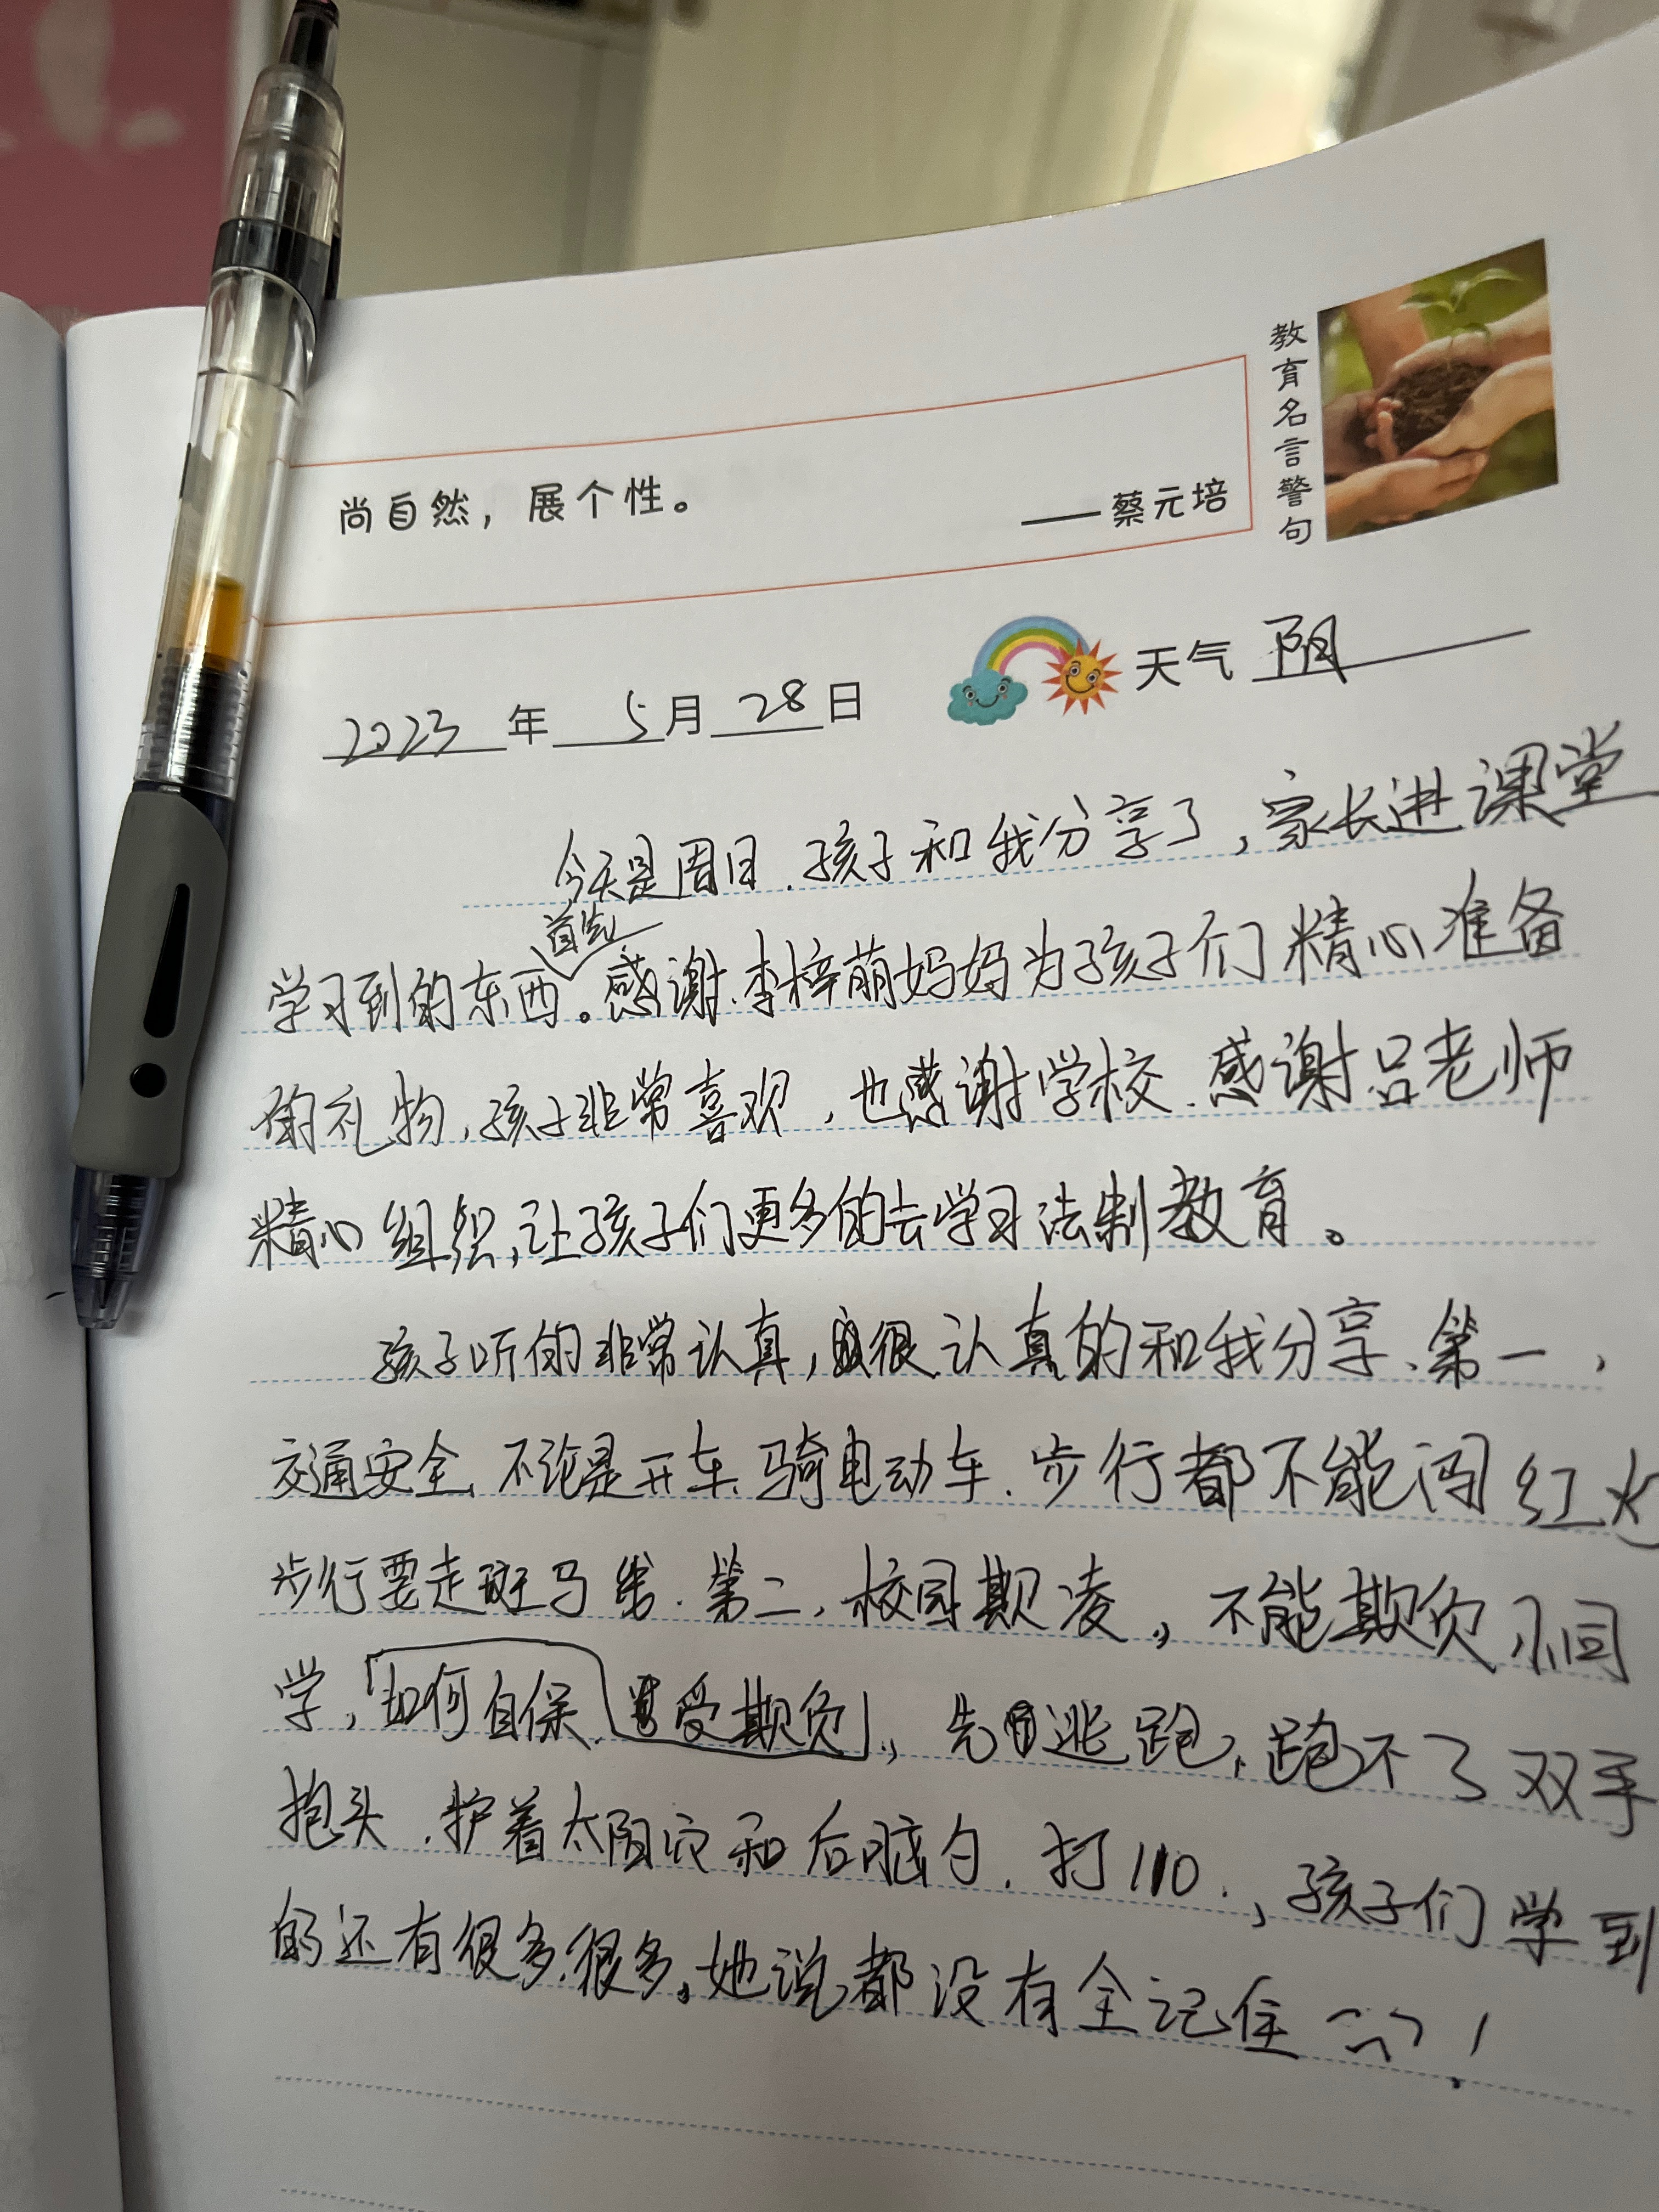 教育名言警句
尚自然，展个性。
——蔡元培
2023年 5月 28日 天气 阴
今天是周日.孩子和我分享了,家长进课堂
首先
学习到的东西。感谢.李梓萌妈妈为孩子们精心准备
的礼物,孩子非常喜欢,也感谢学校.感谢吕老师
精心组织,让孩子们更多的去学习法制教育。
孩子听的非常认真,也很认真的和我分享、第一,
交通安全、不论是开车、骑电动车.步行都不能闯红
步行要走斑马线.第二,校园欺凌,不能欺负小同
学,如何自保、受欺负,先逃跑,跑不了双手
抱头.护着太阳穴和后脑勺.打110.,孩子们学到
的还有很多.很多,她说都没有全记住 !